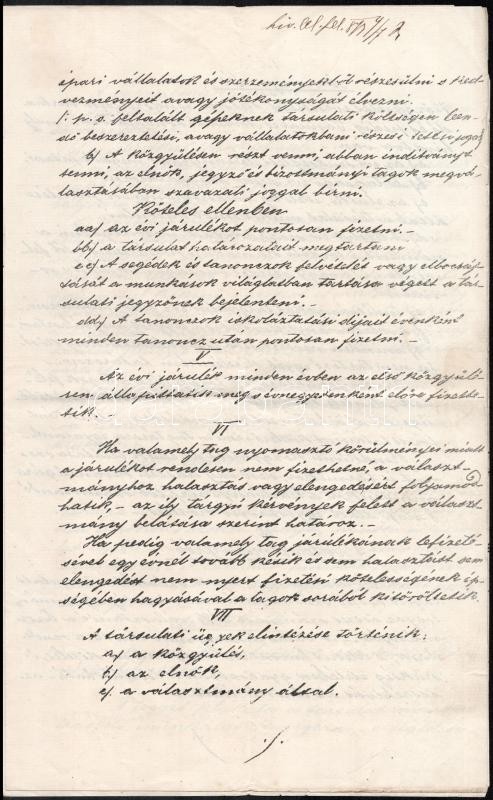 ipari vállalatok és szerzeményekből részesülni s ked
vezményeit avagy jótékonyságát élvezni.
/: p. o. feltalált gépeknek társulati költségen leen
dő beszereztetési, avagy vállalatokbani részesí
b/ A közgyűlésen részt venni, abban inditványt
tenni, az elnök, jegyző és bizottmányi tagok megvá-
lasztásában szavazati joggal birni.
Köteles ellenben
aa/ az évi járulékot pontosan fizetni. –
bb/ a társulat határozatait megtartani
cc/ A segédek és tanonczok felvételét vagy elbocsáj-
tását a munkások világlatban tartása végett a tár-
sulati jegyzőnek bejelenteni. –
dd/ A tanonczok iskoláztatási dijait évenként
minden tanoncz után pontosan fizetni. –
V
Az évi járulék minden évben az első közgyűlé-
sen állapittatik meg s évnegyedenként előre fizette-
tik. –
VI
Ha valamely tag nyomasztó körülményei miatt
a járulékot rendesen nem fizethetné, a választ-
mányhoz halasztás vagy elengedésért folyamod
hatik, – az ily tárgyú kérvények felett a választ-
mány belátása szerint határoz. –
Ha pedig valamely tag járulékának lefizeté-
sével egy évnél tovább késik és sem halasztást sem
elengedést nem nyert fizetési kötelességének ép-
ségében hagyásával a tagok sorából kitöröltetik.
VII
A társulati ügyek elintézése történik:
a/ a közgyűlés,
b/ az elnök,
c/ a választmány által.